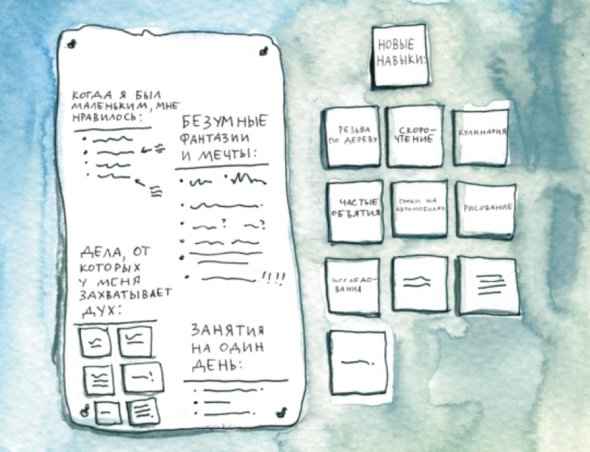 КОГДА Я БЫЛ
МАЛЕНЬКИМ, МНЕ
НРАВИЛОСЬ:
БЕЗУМНЫЕ
ФАНТАЗИИ
И МЕЧТЫ:
ДЕЛА, ОТ
КОТОРЫХ
У МЕНЯ
ЗАХВАТЫВАЕТ
ДУХ:
ЗАНЯТИЯ
НА ОДИН
ДЕНЬ:
НОВЫЕ
НАВЫКИ:
РЕЗЬБА
ПО ДЕРЕВУ
СКОРО-
ЧТЕНИЕ
КУЛИНАРИЯ
ЧАСТЫЕ
ОБЪЯТИЯ
ГОНКИ НА
АВТОМОБИЛЯХ
РИСОВАНИЕ
ИССЛЕДО-
ВАНИЯ